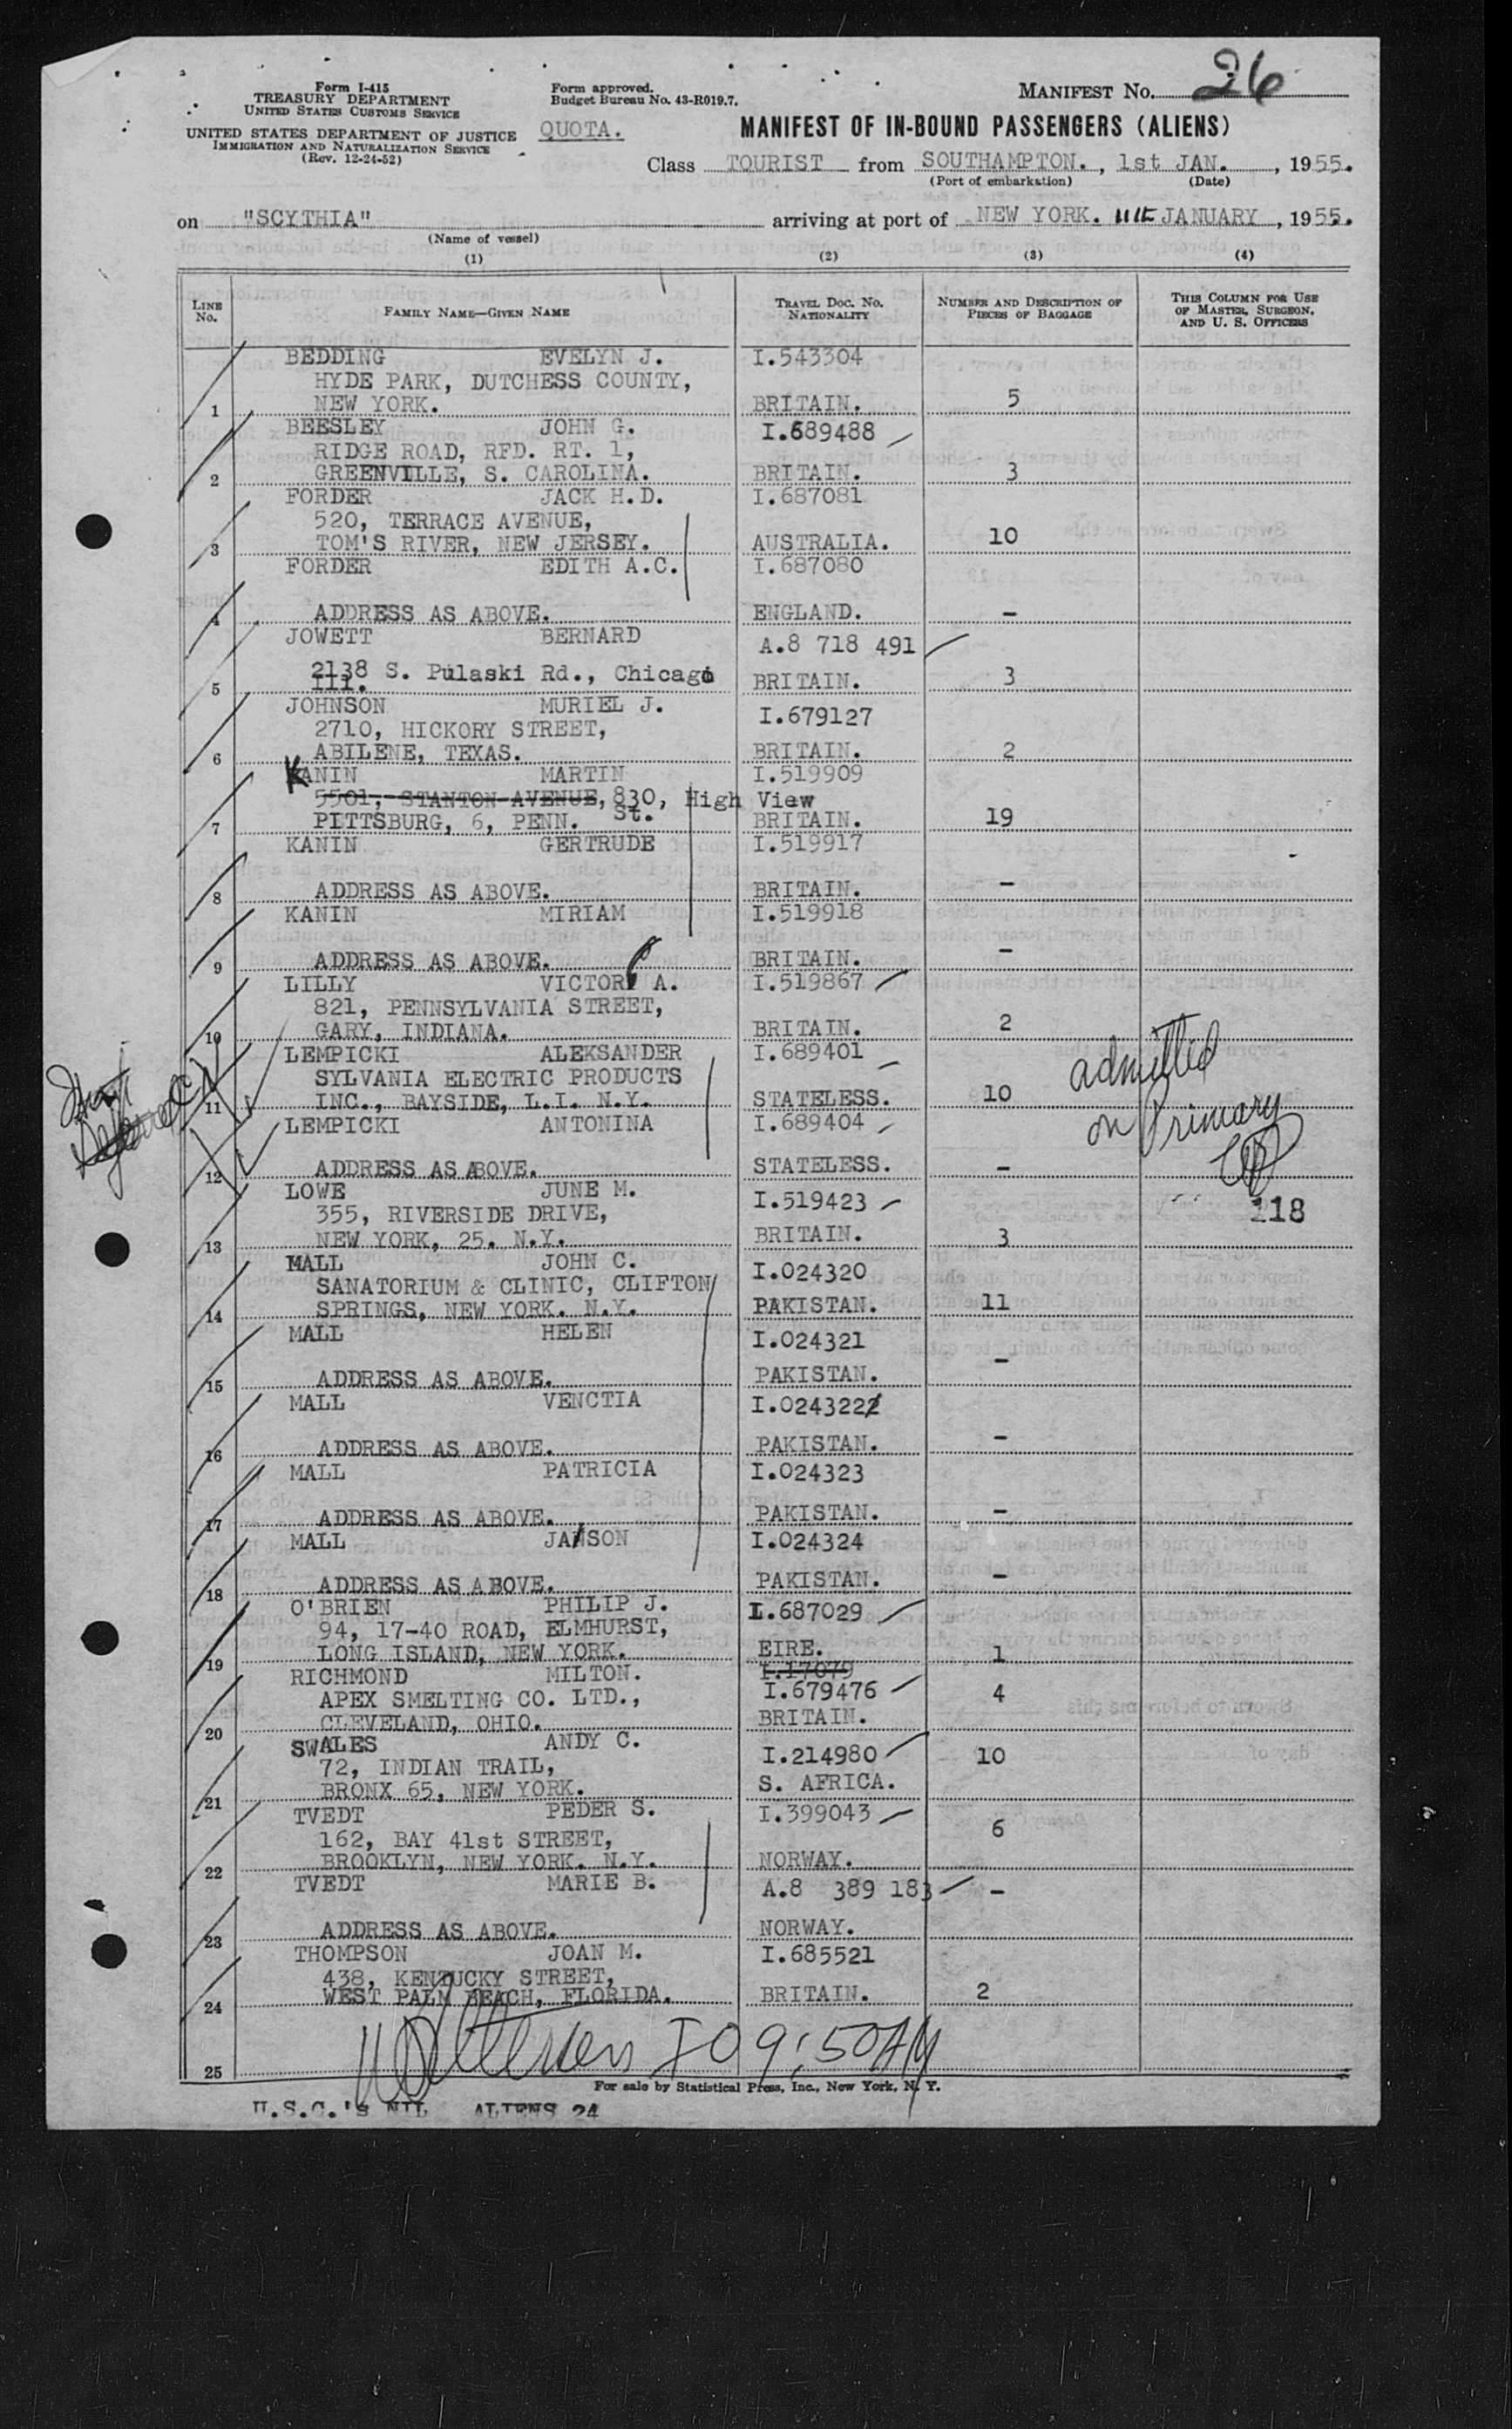 Form I-415
TREASURY DEPARTMENT
UNITED STATES CUSTOMS SERVICE
UNITED STATES DEPARTMENT OF JUSTICE
IMMIGRATION AND NATURALIZATION SERVICE
(Rev. 12-24-52)
Form approved.
Budget Bureau No. 43-R019.7.
QUOTA.
MANIFEST NO. 26
MANIFEST OF IN-BOUND PASSENGERS (ALIENS)
Class TOURIST from SOUTHAMPTON., 1st JAN., 1955.
(Port of embarkation) (Date)
on "SCYTHIA" arriving at port of NEW YORK. JANUARY, 1955.
(Name of vessel)
(1) (2) (3) (4)
LINE NO. FAMILY NAME—GIVEN NAME TRAVEL DOC. NO. NATIONALITY NUMBER AND DESCRIPTION OF PIECES OF BAGGAGE THIS COLUMN FOR USE OF MASTER, SURGEON, AND U. S. OFFICERS
BEDDING EVELYN J. I.543304
HYDE PARK, DUTCHESS COUNTY,
1 NEW YORK. BRITAIN. 5
BEESLEY JOHN G. I.689488
RIDGE ROAD, RFD. RT. 1,
2 GREENVILLE, S. CAROLINA. BRITAIN. 3
FORDER JACK H.D. I.687081
520, TERRACE AVENUE,
3 TOM'S RIVER, NEW JERSEY. AUSTRALIA. 10
FORDER EDITH A.C. I.687080
4 ADDRESS AS ABOVE. ENGLAND. –
JOWETT BERNARD A.8 718 491
2138 S. Pulaski Rd., Chicago
5 Ill. BRITAIN. 3
JOHNSON MURIEL J. I.679127
2710, HICKORY STREET,
6 ABILENE, TEXAS. BRITAIN. 2
KANIN MARTIN I.519909
5501, STANTON AVENUE, 830, High View
7 PITTSBURG, 6, PENN. St. BRITAIN. 19
KANIN GERTRUDE I.519917
8 ADDRESS AS ABOVE. BRITAIN. –
KANIN MIRIAM I.519918
9 ADDRESS AS ABOVE. BRITAIN. –
LILLY VICTOR A. I.519867
821, PENNSYLVANIA STREET,
10 GARY, INDIANA. BRITAIN. 2
LEMPICKI ALEKSANDER I.689401
SYLVANIA ELECTRIC PRODUCTS
11 INC., BAYSIDE, L.I. N.Y. STATELESS. 10 admitted
LEMPICKI ANTONINA I.689404 on Primary
12 ADDRESS AS ABOVE. STATELESS. –
LOWE JUNE M. I.519423 118
355, RIVERSIDE DRIVE,
13 NEW YORK, 25. N.Y. BRITAIN. 3
MALL JOHN C. I.024320
SANATORIUM & CLINIC, CLIFTON
14 SPRINGS, NEW YORK. N.Y. PAKISTAN. 11
MALL HELEN I.024321
15 ADDRESS AS ABOVE. PAKISTAN. –
MALL VENCTIA I.024322
16 ADDRESS AS ABOVE. PAKISTAN. –
MALL PATRICIA I.024323
17 ADDRESS AS ABOVE. PAKISTAN. –
MALL I.024324
18 ADDRESS AS ABOVE. PAKISTAN. –
O'BRIEN PHILIP J. I.687029
94, 17-40 ROAD, ELMHURST,
19 LONG ISLAND, NEW YORK. EIRE. 1
I.17079
RICHMOND MILTON. I.679476 4
APEX SMELTING CO. LTD.,
20 CLEVELAND, OHIO. BRITAIN.
SWALES ANDY C. I.214980 10
72, INDIAN TRAIL,
21 BRONX 65, NEW YORK. S. AFRICA.
TVEDT PEDER S. I.399043 6
162, BAY 41st STREET,
22 BROOKLYN, NEW YORK. N.Y. NORWAY.
TVEDT MARIE B. A.8 389 183 –
23 ADDRESS AS ABOVE. NORWAY.
THOMPSON JOAN M. I.685521
438, KENTUCKY STREET,
24 WEST PALM BEACH, FLORIDA. BRITAIN. 2
9:50AM
25
For sale by Statistical Press, Inc., New York, N. Y.
U.S.C.'s NIL ALIENS 24